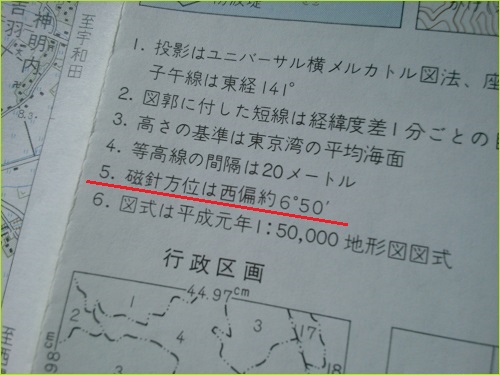 至宇和田
神明内
吉羽
1. 投影はユニバーサル横メルカトル図法、座
子午線は東経141°
2. 図郭に付した短線は経緯度差1分ごとの目
3. 高さの基準は東京湾の平均海面
4. 等高線の間隔は20メートル
5. 磁針方位は西偏約6°50′
6. 図式は平成元年1:50,000 地形図図式
行政区画
44.97cm
1
2
3
17
18
4
3